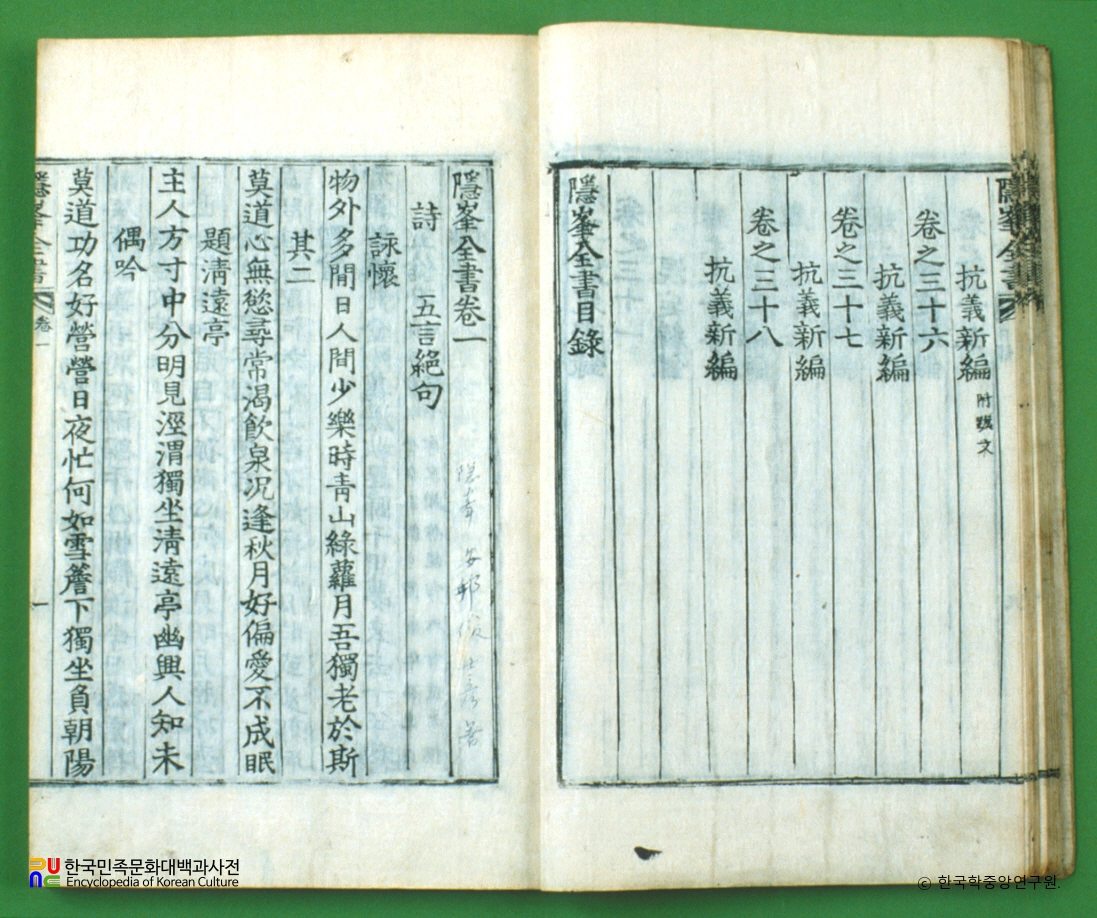 隱峯全書
抗義新編 附跋文
卷之三十六
抗義新編
卷之三十七
抗義新編
卷之三十八
抗義新編
隱峯全書目錄
隱峯全書卷一
隱峯 安邦俊 士彦 著
詩 五言絕句
詠懷
物外多閒日人間少樂時靑山綠蘿月吾獨老於斯
其二
莫道心無慾尋常渴飮泉况逢秋月好偏愛不成眠
題淸遠亭
主人方寸中分明見涇渭獨坐淸遠亭幽興人知未
偶吟
莫道功名好營營日夜忙何如雪簷下獨坐負朝陽
隱峯全書 卷一 一
한국민족문화대백과사전
Encyclopedia of Korean Culture
© 한국학중앙연구원.